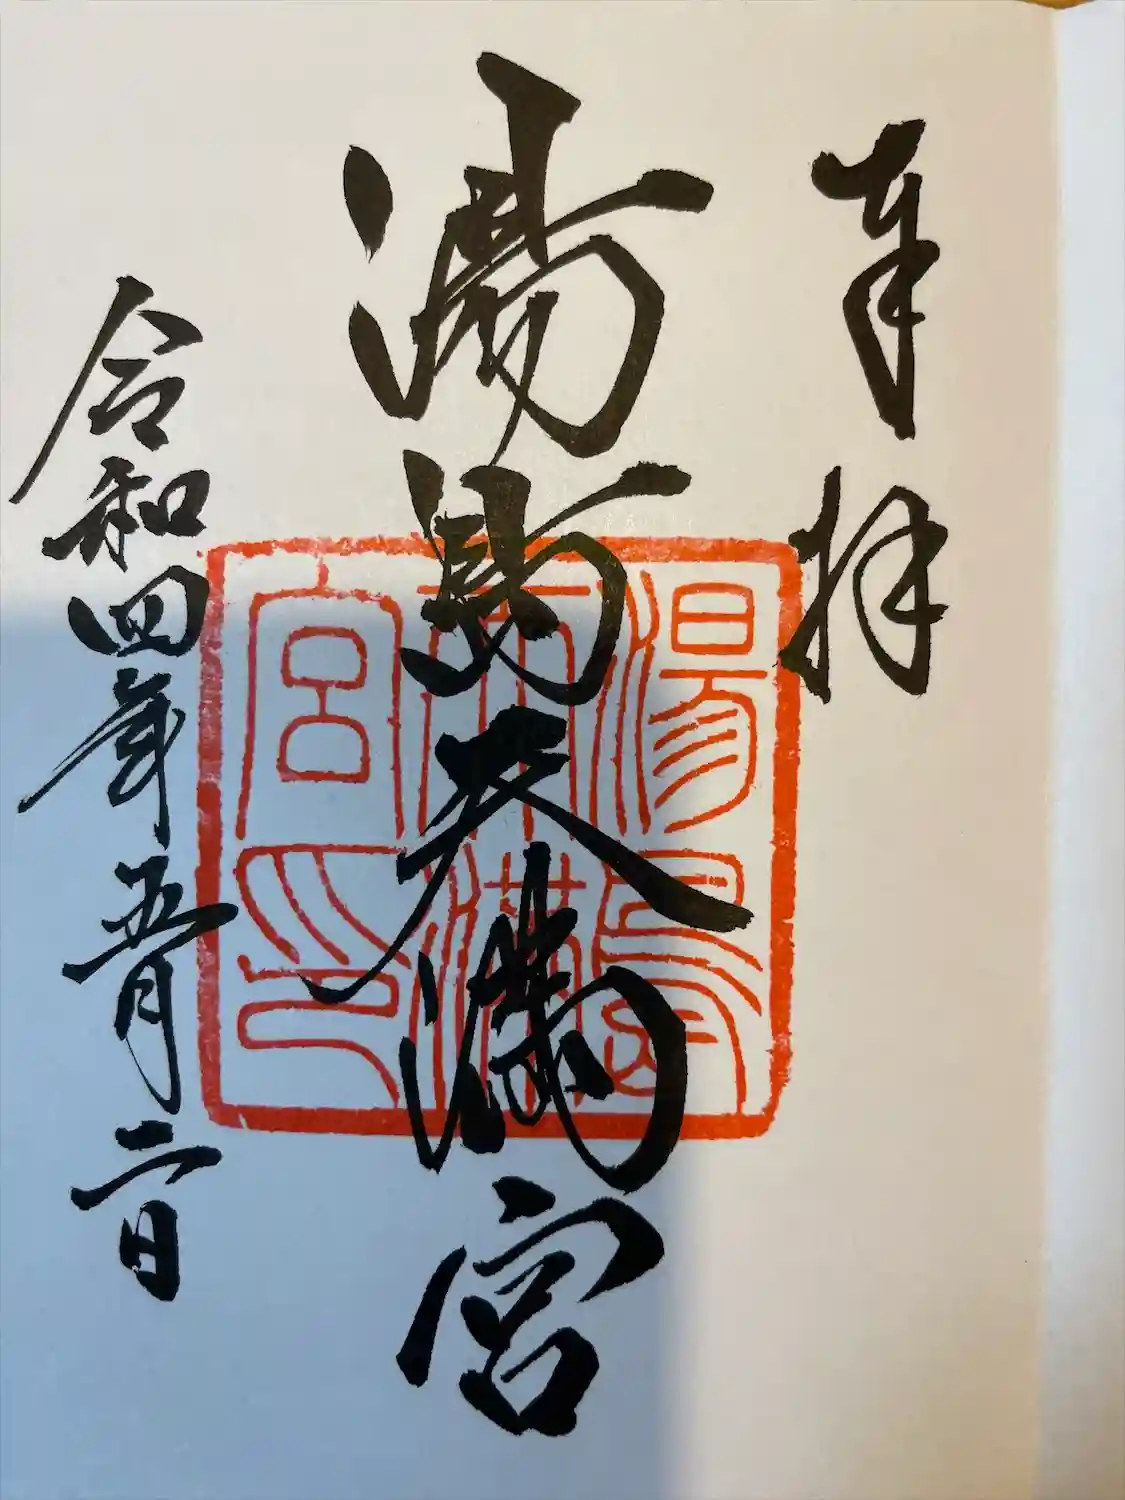 奉拝
湯島天満宮
令和四年五月二日
湯島
天満
宮印